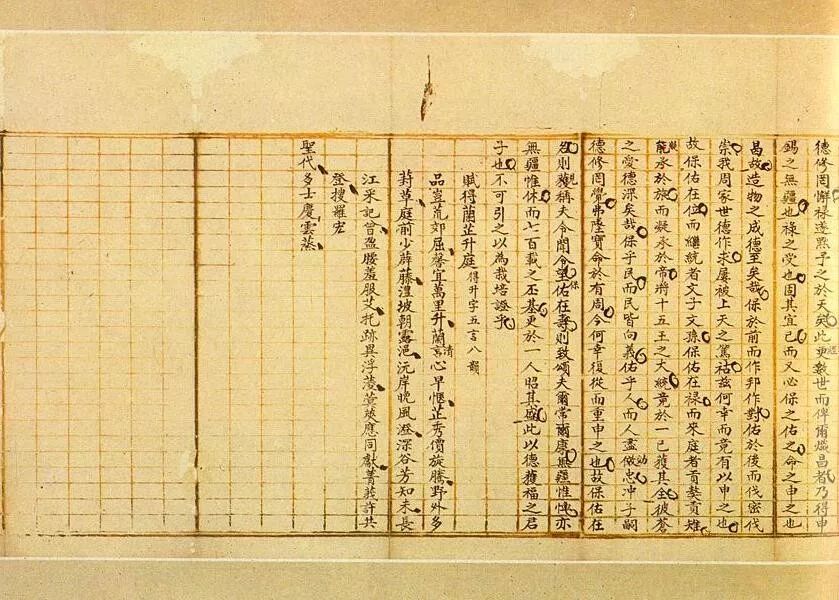 德修罔懈祿遂熙予之於天矣此奕數世而俾爾熾昌者乃得申
錫之無疆也祿之受也因其宜已而又必保之佑之命之申之也
昌故造物之成德至矣哉保於前而作邦作對佑於後而伐密伐
崇我周家世德作求屢被上天之篤祜茲何幸而竟有以申之也
故保佑在位而繼統者文子文孫保佑在祿而來庭者貢獒貢雉
承於旅而凝承於常將十五王之大統竟於一已獲其全彼蒼
之愛德深矣哉保乎民而民皆向義佑乎人而人盡做忠冲子嗣
德修罔覺弗墜寶命於有周今何幸復從而重申之也故保佑在
名則獲稱夫令聞令望佑在壽則致頌夫爾常爾康無疆惟愧亦
無疆惟休而七百載之丕基更於一人昭其盛此以德獲福之君
子也不可引之以為栽培證乎
賦得蘭芷升庭得升字五言八韻
品豈荒郊屈馨宜萬里升蘭言心早愜芷秀價旋騰野外多
葑草庭前少薜藤澧坡朝露浥沅岸晚風澄深谷芳知未長
江采記曾盈腰羞服艾托跡異浮蔆萱莢應同獻菁莪許共
登搜羅宏
聖代多士慶雲蒸